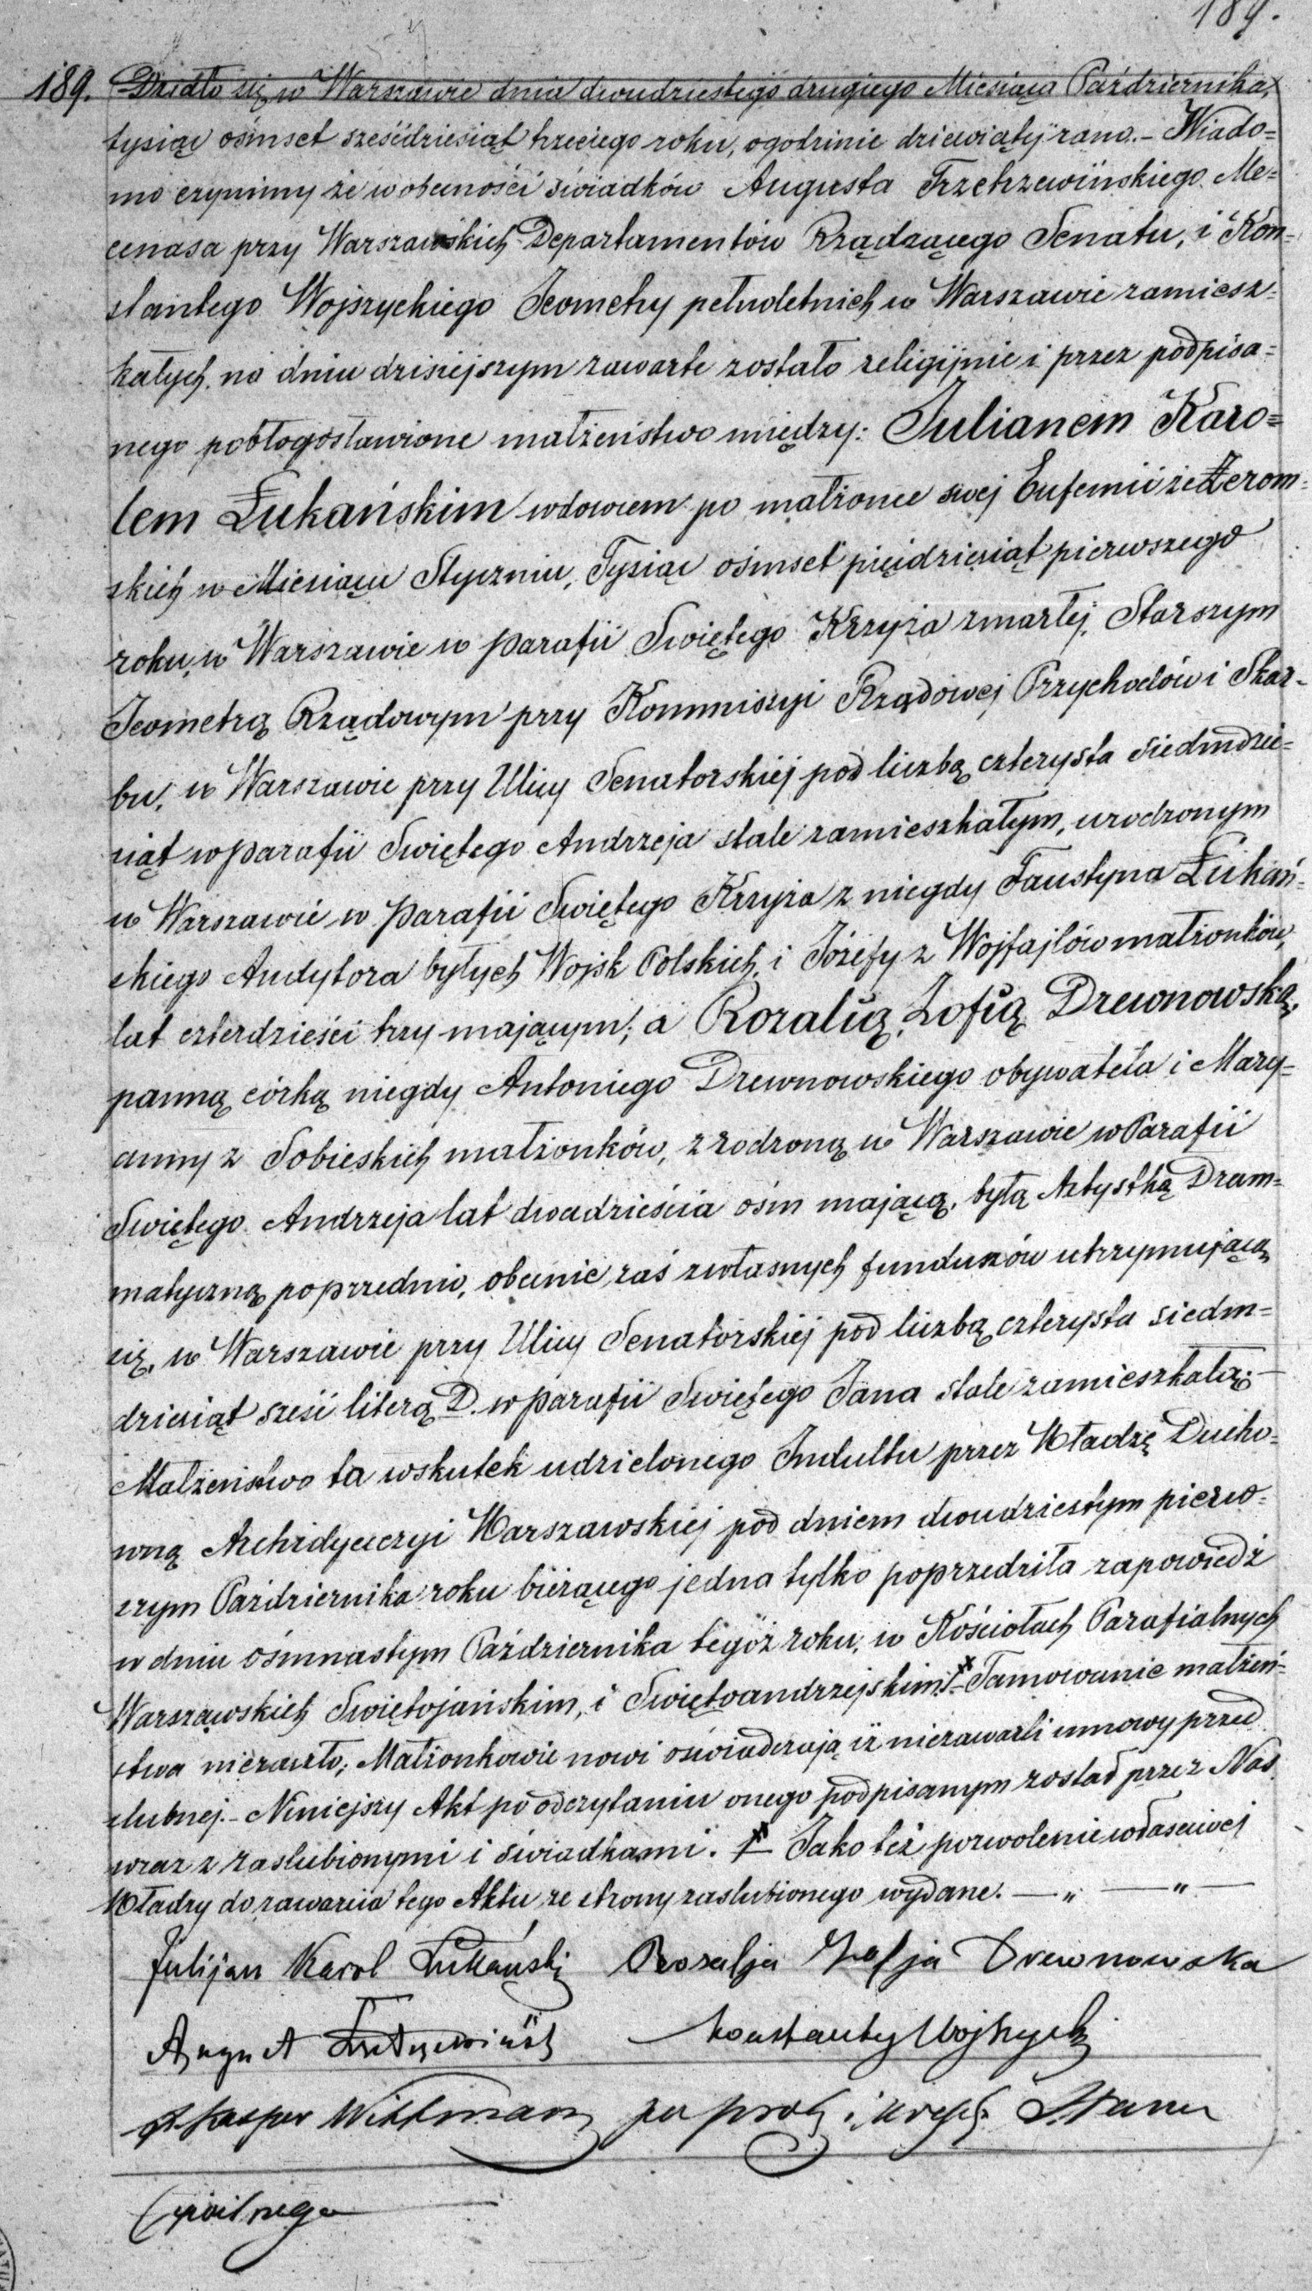 189.
189. Działo się w Warszawie dnia dwudziestego drugiego Miesiąca Października,
tysiąc ośmset sześćdziesiąt trzeciego roku, ogodzinie dziewiątéj rano. – Wiado=
mo czynimy że w obecności świadków Augusta Trzetrzewińskiego Me=
cenasa przy Warszawskich Departamentów Rządzącego Senatu, i Kon=
stantego Wojszyckiego Jeometry pełnoletnich w Warszawie zamiesz=
kałych, na dniu dzisiejszym zawarte zostało religijnie i przez podpisa=
nego pobłogosławione małżeństwo między: Julianem Karo=
lem Łukańskim wdowcem po małżonce swej Eufemii ze Żerom=
skich w Miesiącu Styczniu, Tysiąc ośmset pięćdziesiąt pierwszego
roku, w Warszawie w parafii Świętego Krzyża zmarłej, Starszym
Jeometrą Rządowym przy Kommissyi Rządowej Przychodów i Skar=
bu, w Warszawie przy Ulicy Senatorskiej pod liczbą czterysta siedmdzie=
siąt w parafii Świętego Andrzeja stale zamieszkałym, urodzonym
w Warszawie w Parafii Świętego Krzyża z niegdy Faustyna Łukań=
skiego Audytora byłych Wojsk Polskich, i Józefy z Wojfajlów małżonków,
lat czterdzieści trzy mającym; a Rozalią, Zofią Drewnowską,
panną córką niegdy Antoniego Drewnowskiego obywatela i Mary=
anny z Sobieskich małżonków, zrodzoną w Warszawie w Parafii
Świętego Andrzeja lat dwadzieścia ośm mającą, byłą Artystką Dram=
matyczną poprzednio, obecnie zaś z własnych funduszów utrzymującą
się, w Warszawie przy Ulicy Senatorskiej pod liczbą czterysta siedm=
dziesiąt sześć literą D. w parafii Świętego Jana stale zamieszkałą. –
Małżeństwo to wskutek udzielonego Indultu przez Władzę Ducho=
wną Archidyecezyi Warszawskiej pod dniem dwudziestym pierw=
szym Października roku bieżącego jedna tylko poprzedziła zapowiedź
w dniu ośmnastym Października tegóż roku, w Kościołach Parafialnych
Warszawskich Świętojańskim, i Świętoandrzejskim. Tamowanie małżeń=
stwa niezaszło; Małżonkowie nowi oświadczają iż niezawarli umowy przed
ślubnej. – Niniejszy Akt po odczytaniu onego podpisanym został przez Nas
wraz z zaślubionymi i świadkami. Jako też pozwolenie właściwej
Władzy do zawarcia tego Aktu ze strony zaślubionego wydane. — „ — „ —
Julijan Karol Łukański Rozalja Zofja Drewnowska
August Trzetrzewiński Konstanty Wojszycki
X. Kasper Wittmann za prob i urzęd. Stanu
Cywilnego